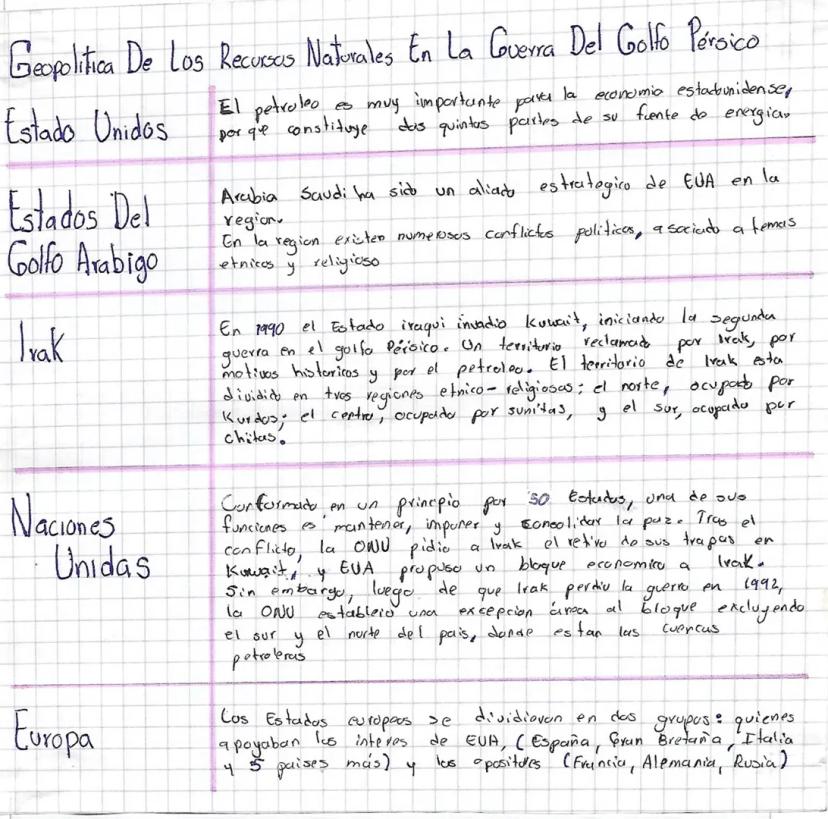 Geopolitica De Los Recursos Naturales En La Guerra Del Golfo Pérsico
Estado Unidos
El petroleo es muy importante para la economia estadounidense,
por que constituye dos quintas partes de su fuente de energias
Estados Del
Golfo Arabigo
Arabia Saudi ha sido un aliado estrategico de EUA en la
region.
En la region existen numerosos conflictos politicos, asociado a temas
etnicos y religioso
Irak
En 1990 el Estado iraqui invadio Kuwait, iniciando la segunda
guerra en el golfo Pérsico. Un territorio reclamado por Irak, por
motivos historicos y por el petroleo. El territorio de Irak esta
dividido en tres regiones etnico-religiosas: el norte, ocupado por
Kurdos; el centro, ocupado por sunitas, y el sur, ocupado por
chitas.
Naciones
Unidas
Conformado en un principio por 50 Estados, una de sus
funciones es mantener, imponer y consolidar la paz. Tras el
conflicto, la ONU pidio a Irak el retiro de sus tropas en
Kuwait, y EUA propuso un bloque economico a Irak.
Sin embargo, luego de que Irak perdio la guerra en 1992,
la ONU establecio una excepcion área al bloque excluyendo
el sur y el norte del pais, donde estan las cuencas
petroleras
Europa
Los Estados europeos se dividieron en dos grupos: quienes
apoyaban los interes de EUA, (España, Gran Bretaña, Italia
y 5 paises más) y los opositores (Francia, Alemania, Rusia)